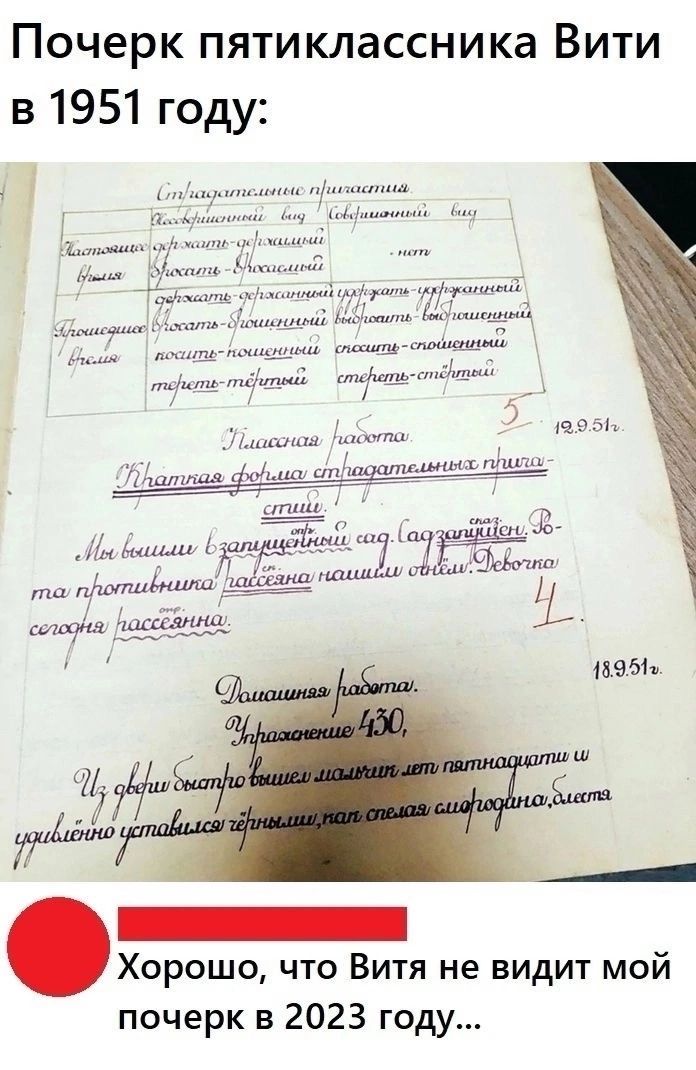 Почерк пятиклассника Вити
в 1951 году:
Страдательные причастия.
Несовершенный вид Совершенный вид
Настоящее время
держать-держимый
бросать-бросаемый
- нет
Прошедшее время
держать-держанный удержать-удержанный
бросать-брошенный выбросить-выброшенный
косить-кошенный скосить-скошенный
тереть-тёртый стереть-стёртый
5
12.9.51г.
Классная работа.
Краткая форма страдательных прича-
стий.
опр. сказ.
Мы вышли в запущенный сад. Сад запущен. Ро-
ск.
та противника рассеяна нашим огнём. Девочка
опр.
сегодня рассеянна.
4
18.9.51г.
Домашняя работа.
Упражнение 430,
Из двери быстро вышел мальчик лет пятнадцати и
удивлённо уставился чёрными, как спелая смородина, блестя
Хорошо, что Витя не видит мой
почерк в 2023 году...